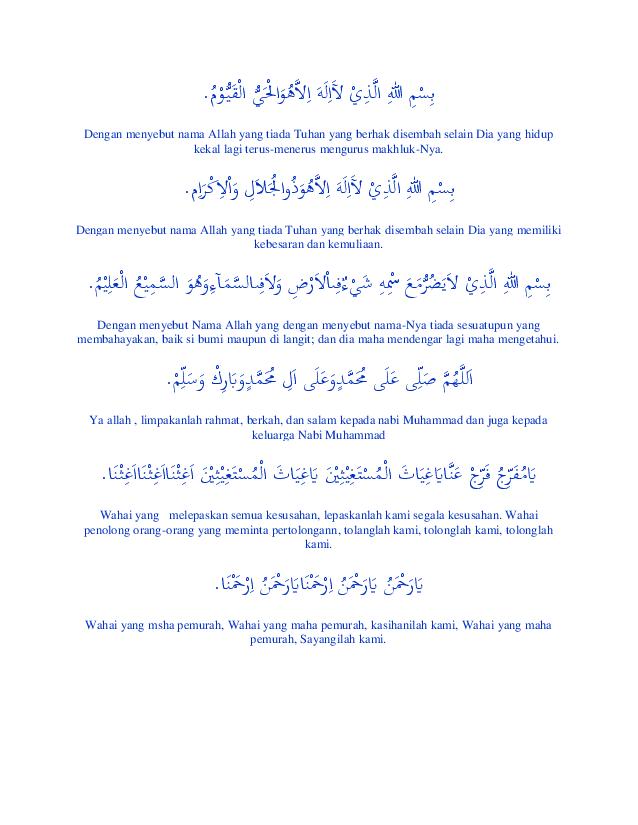 بِسْمِ اللهِ الَّذِيْ لَاۤاِلَهَ اِلاَّهُوَالْحَيُّ الْقَيُّوْمُ.
Dengan menyebut nama Allah yang tiada Tuhan yang berhak disembah selain Dia yang hidup
kekal lagi terus-menerus mengurus makhluk-Nya.
بِسْمِ اللهِ الَّذِيْ لَاۤاِلَهَ اِلاَّهُوَذُوالْجَلاَلِ وَاْلاِكْرَامِ.
Dengan menyebut nama Allah yang tiada Tuhan yang berhak disembah selain Dia yang memiliki
kebesaran dan kemuliaan.
بِسْمِ اللهِ الَّذِيْ لاَيَضُرُّمَعَ سْمِهِ شَيْءٌفِىاْلاَرْضِ وَلاَفِىالسَّمَآءِوَهُوَ السَّمِيْعُ الْعَلِيْمُ.
Dengan menyebut Nama Allah yang dengan menyebut nama-Nya tiada sesuatupun yang
membahayakan, baik si bumi maupun di langit; dan dia maha mendengar lagi maha mengetahui.
اَللَّهُمَّ صَلِّى عَلَى مُحَمَّدٍوَعَلَى اَلِ مُحَمَّدٍوَبَارِكْ وَسَلِّمْ.
Ya allah , limpakanlah rahmat, berkah, dan salam kepada nabi Muhammad dan juga kepada
keluarga Nabi Muhammad
يَامُفَرِّجُ فَرِّجْ عَنَّايَاغِيَاثَ الْمُسْتَغِيْثِيْنَ يَاغِيَاثَ الْمُسْتَغِيْثِيْنَ اَغِثْنَااَغِثْنَااَغِثْنَا.
Wahai yang melepaskan semua kesusahan, lepaskanlah kami segala kesusahan. Wahai
penolong orang-orang yang meminta pertolongann, tolanglah kami, tolonglah kami, tolonglah
kami.
يَارَحْمَنُ يَارَحْمَنُ اِرْحَمْنَايَارَحْمَنُ اِرْحَمْنَا.
Wahai yang msha pemurah, Wahai yang maha pemurah, kasihanilah kami, Wahai yang maha
pemurah, Sayangilah kami.